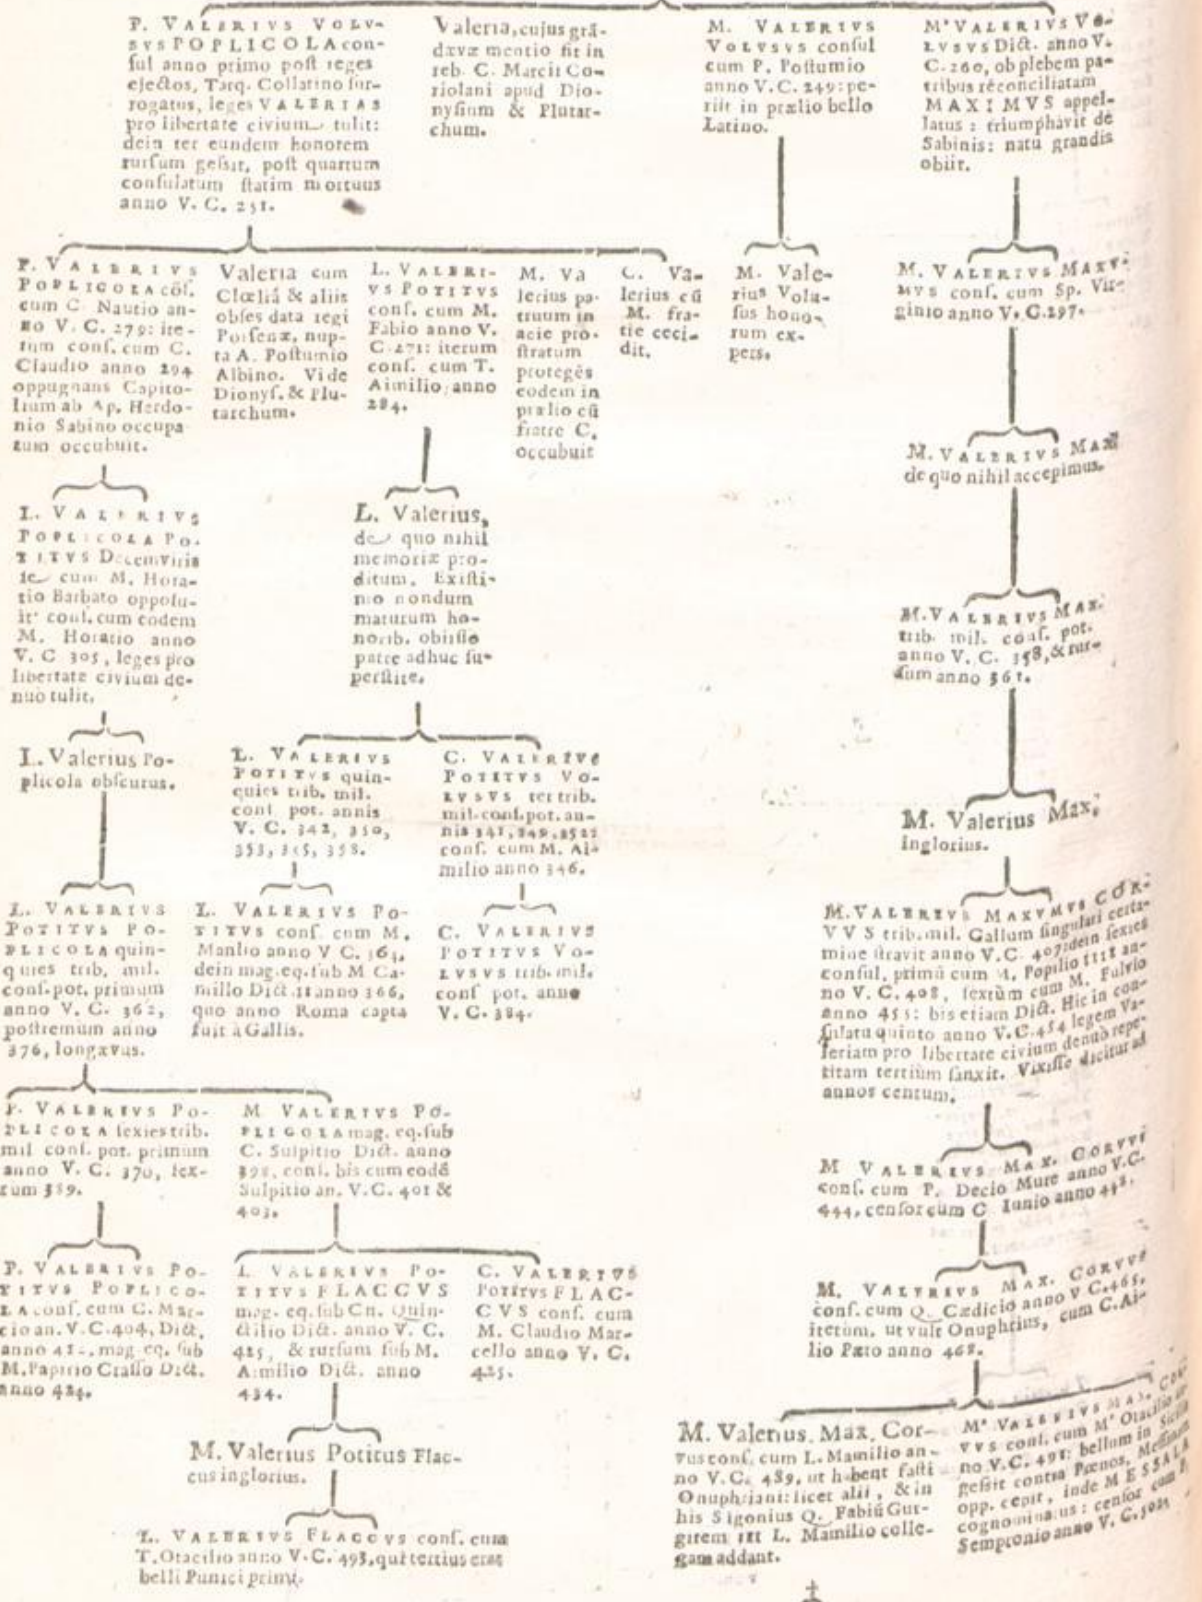 P. VALERIVS VOLV-
SVS POPLICOLA con-
ful anno primo poſt reges
ejectos, Tarq. Collatino ſur-
rogatus, leges VALERIAS
pro libertate civium tulit:
dein ter eundem honorem
rurſum geſsit, poſt quartum
conſulatum ſtatim mortuus
anno V. C. 251.
Valeria, cujus grã-
dævæ mentio fit in
reb. C. Marcii Co-
riolani apud Dio-
nyſium & Plutar-
chum.
M. VALERIVS
VOLVSVS conſul
cum P. Poſtumio
anno V. C. 249: pe-
riit in prælio bello
Latino.
M' VALERIVS VO-
LVSVS Dict. anno V.
C. 260, ob plebem pa-
tribus reconciliatam
MAXIMVS appel-
latus: triumphavit de
Sabinis: natu grandis
obiit.
P. VALERIVS
POPLICOLA cõſ.
cum C. Nautio an-
no V. C. 279: ite-
rum conſ. cum C.
Claudio anno 294
oppugnans Capito-
lium ab Ap. Herdo-
nio Sabino occupa
tum occubuit.
Valeria cum
Clœliâ & aliis
obſes data regi
Porſenæ, nup-
ta A. Poſtumio
Albino. Vide
Dionyſ. & Plu-
tarchum.
L. VALERI-
VS POTITVS
conſ. cum M.
Fabio anno V.
C. 271: iterum
conſ. cum T.
Aimilio, anno
284.
M. Va
lerius pa-
truum in
acie pro-
ſtratum
protegẽs
eodem in
prælio cũ
fratre C.
occubuit
C. Va-
lerius cũ
M. fra-
tre ceci-
dit.
M. Vale-
rius Volu-
ſus hono-
rum ex-
pers.
M. VALERIVS MAXV-
MVS conſ. cum Sp. Vir-
ginio anno V. C. 297.
M. VALERIVS MAX.
de quo nihil accepimus.
L. VALERIVS
POPLICOLA PO-
TITVS Decemviris
ſe cum M. Hora-
tio Barbato oppoſu-
it: conſ. cum eodem
M. Horatio anno
V. C 305, leges pro
libertate civium de-
nuò tulit.
L. Valerius,
de quo nihil
memoriæ pro-
ditum. Exiſti-
mo nondum
maturum ho-
norib. obiiſſe
patre adhuc ſu-
perſtite.
M. VALERIVS MAX.
trib. mil. conſ. pot.
anno V. C. 358, & rur-
ſum anno 361.
L. Valerius Po-
plicola obſcurus.
L. VALERIVS
POTITVS quin-
quies trib. mil.
conſ pot. annis
V. C. 342, 350,
353, 355, 358.
C. VALERIVS
POTITVS VO-
LVSVS ter trib.
mil. conſ. pot. an-
nis 341, 349,
conſ. cum M. Ai-
milio anno 346.
M. Valerius Max.
inglorius.
L. VALERIVS
POTITVS PO-
PLICOLA quin-
quies trib. mil.
conſ. pot. primum
anno V. C. 362,
poſtremùm anno
376, longævus.
L. VALERIVS PO-
TITVS conſ. cum M.
Manlio anno V C. 364,
dein mag. eq. ſub M Ca-
millo Dict. II anno 366,
quo anno Roma capta
fuit à Gallis.
C. VALERIVS
POTITVS VO-
LVSVS trib. mil.
conſ pot. anno
V. C. 384.
M. VALERIVS MAXVMVS COR-
VVS trib. mil. Gallum ſingulari certa-
mine ſtravit anno V. C. 407: dein ſexies
conſul, primũ cum M. Popilio IIII an-
no V. C. 408, ſextùm cum M. Fulvio
anno 455: bis etiam Dict. Hic in con-
ſulatu quinto anno V. C. 454 legem Va-
leriam pro libertate civium denuò repe-
titam tertiùm ſanxit. Vixiſſe dicitur ad
annos centum.
P. VALERIVS PO-
PLICOLA ſexies trib.
mil conſ. pot. primùm
anno V. C. 370, ſex-
tùm 389.
M VALERIVS PO-
PLICOLA mag. eq. ſub
C. Sulpitio Dict. anno
395, conſ. bis cum eodẽ
Sulpitio an. V. C. 401 &
403.
M VALERIVS MAX. CORVVS
conſ. cum P. Decio Mure anno V. C.
444, cenſor cum C Iunio anno 448.
P. VALERIVS PO-
TITVS POPLICO-
LA conſ. cum C. Mar-
cio an. V. C. 404, Dict.
anno mag. eq. ſub
M. Papirio Craſſo Dict.
anno 424.
L VALERIVS PO-
TITVS FLACCVS
mag. eq. ſub Cn. Quin-
ctilio Dict. anno V. C.
425, & rurſum ſub M.
Aimilio Dict. anno
434.
C. VALERIVS
POTITVS FLAC-
CVS conſ. cum
M. Claudio Mar-
cello anno V. C.
425.
M. VALERIVS MAX. CORVVS
conſ. cum Q. Cædicio anno V C. 465,
iterùm, ut vult Onuphrius, cum C. Ai-
lio Pæto anno 468.
M. Valerius Potitus Flac-
cus inglorius.
M. Valerius. Max. Cor-
vus conſ. cum L. Mamilio an-
no V. C. 489, ut habent faſti
Onuphriani: licet alii, & in
his Sigonius Q. Fabiũ Gur-
gitem III L. Mamilio colle-
gam addant.
M' VALERIVS MAX. COR-
VVS conſ. cum M' Otacilio
no V. C. 491: bellum in Sicilia
geſsit contra Pœnos, Meſſanam
opp. cepit, inde MESSALA
cognominatus: cenſor cum P.
Sempronio anno V. C. 502.
L. VALERIVS FLACCVS conſ. cum
T. Otacilio anno V. C. 493, qui tertius erat
belli Punici primi.